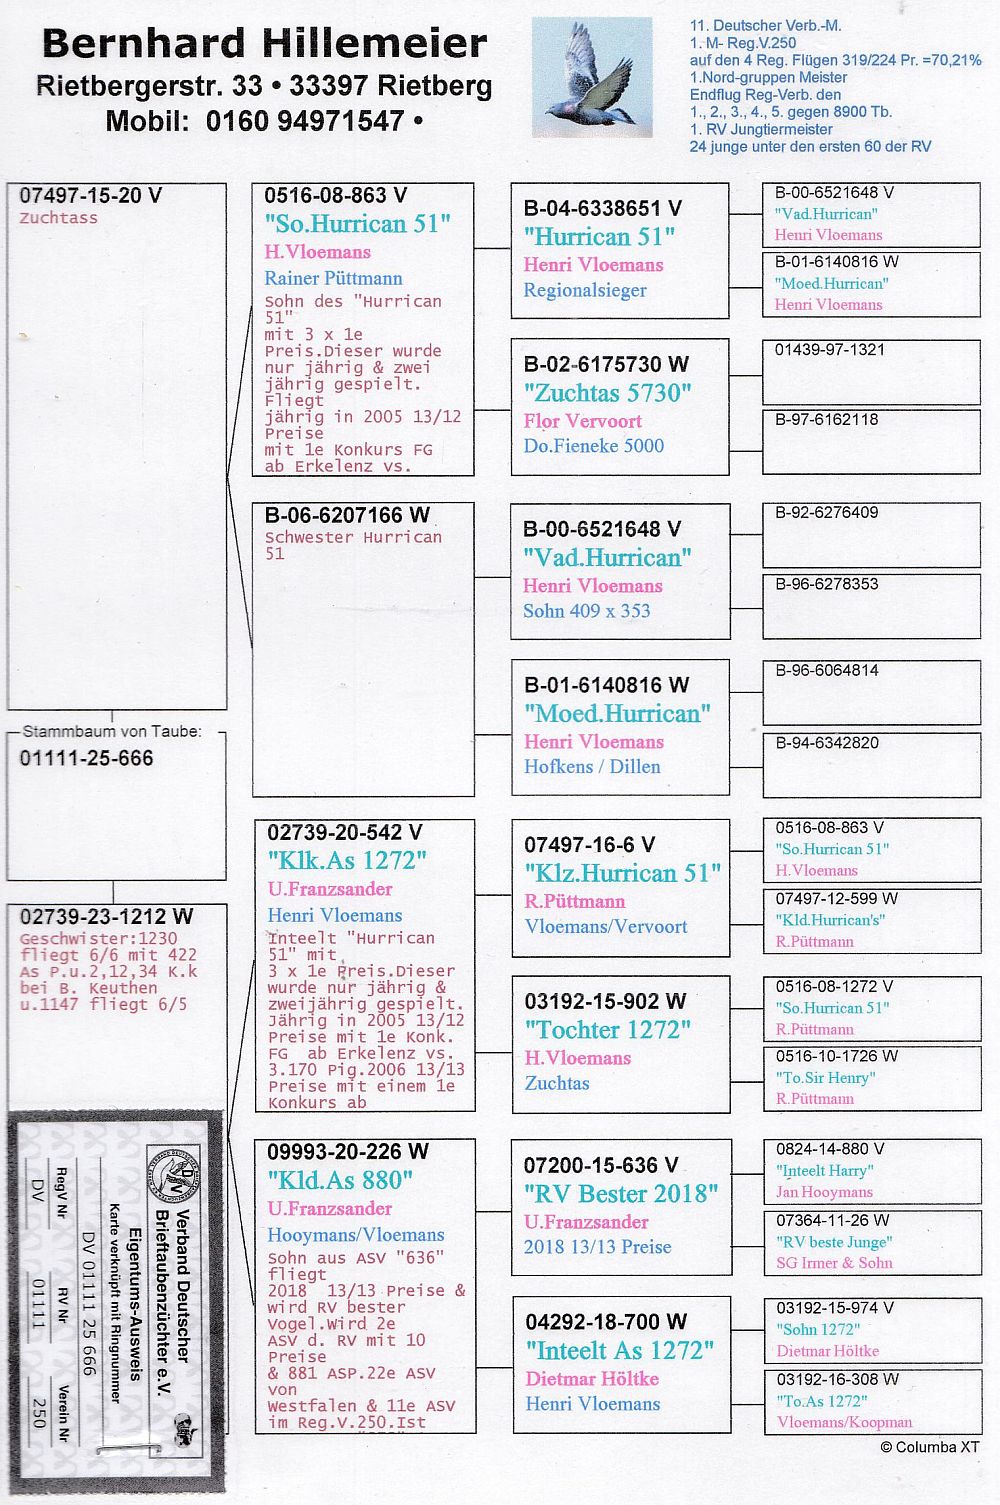 Bernhard Hillemeier
Rietbergerstr. 33 • 33397 Rietberg
Mobil: 0160 94971547 •
11. Deutscher Verb.-M.
1. M- Reg.V.250
auf den 4 Reg. Flügen 319/224 Pr. =70,21%
1.Nord-gruppen Meister
Endflug Reg-Verb. den
1., 2., 3., 4., 5. gegen 8900 Tb.
1. RV Jungtiermeister
24 junge unter den ersten 60 der RV
07497-15-20 V
Zuchtass
Stammbaum von Taube:
01111-25-666
02739-23-1212 W
Geschwister:1230
fliegt 6/6 mit 422
As P.u.2,12,34 K.k
bei B. Keuthen
u.1147 fliegt 6/5
0516-08-863 V
"So.Hurrican 51"
H.Vloemans
Rainer Püttmann
Sohn des "Hurrican
51"
mit 3 x 1e
Preis.Dieser wurde
nur jährig & zwei
jährig gespielt.
Fliegt
jährig in 2005 13/12
Preise
mit 1e Konkurs FG
ab Erkelenz vs.
B-06-6207166 W
Schwester Hurrican
51
02739-20-542 V
"Klk.As 1272"
U.Franzsander
Henri Vloemans
Inteelt "Hurrican
51" mit
3 x 1e Preis.Dieser
wurde nur jährig &
zweijährig gespielt.
Jährig in 2005 13/12
Preise mit 1e Konk.
FG ab Erkelenz vs.
3.170 Pig.2006 13/13
Preise mit einem 1e
Konkurs ab
09993-20-226 W
"Kld.As 880"
U.Franzsander
Hooymans/Vloemans
Sohn aus ASV "636"
fliegt
2018 13/13 Preise &
wird RV bester
Vogel.Wird 2e
ASV d. RV mit 10
Preise
& 881 ASP.22e ASV
von
Westfalen & 11e ASV
im Reg.V.250.Ist
B-04-6338651 V
"Hurrican 51"
Henri Vloemans
Regionalsieger
B-02-6175730 W
"Zuchtas 5730"
Flor Vervoort
Do.Fieneke 5000
B-00-6521648 V
"Vad.Hurrican"
Henri Vloemans
Sohn 409 x 353
B-01-6140816 W
"Moed.Hurrican"
Henri Vloemans
Hofkens / Dillen
07497-16-6 V
"Klz.Hurrican 51"
R.Püttmann
Vloemans/Vervoort
03192-15-902 W
"Tochter 1272"
H.Vloemans
Zuchtas
07200-15-636 V
"RV Bester 2018"
U.Franzsander
2018 13/13 Preise
04292-18-700 W
"Inteelt As 1272"
Dietmar Höltke
Henri Vloemans
B-00-6521648 V
"Vad.Hurrican"
Henri Vloemans
B-01-6140816 W
"Moed.Hurrican"
Henri Vloemans
01439-97-1321
B-97-6162118
B-92-6276409
B-96-6278353
B-96-6064814
B-94-6342820
0516-08-863 V
"So.Hurrican 51"
H.Vloemans
07497-12-599 W
"Kld.Hurrican's"
R.Püttmann
0516-08-1272 V
"So.Hurrican 51"
R.Püttmann
0516-10-1726 W
"To.Sir Henry"
R.Püttmann
0824-14-880 V
"Inteelt Harry"
Jan Hooymans
07364-11-26 W
"RV beste Junge"
SG Irmer & Sohn
03192-15-974 V
"Sohn 1272"
Dietmar Höltke
03192-16-308 W
"To.As 1272"
Vloemans/Koopman
© Columba XT
Verband Deutscher
Brieftaubenzüchter e.V.
Eigentums-Ausweis
Karte verknüpft mit Ringnummer
DV 01111 25 666
RegV Nr RV Nr Verein Nr
DV 01111 250